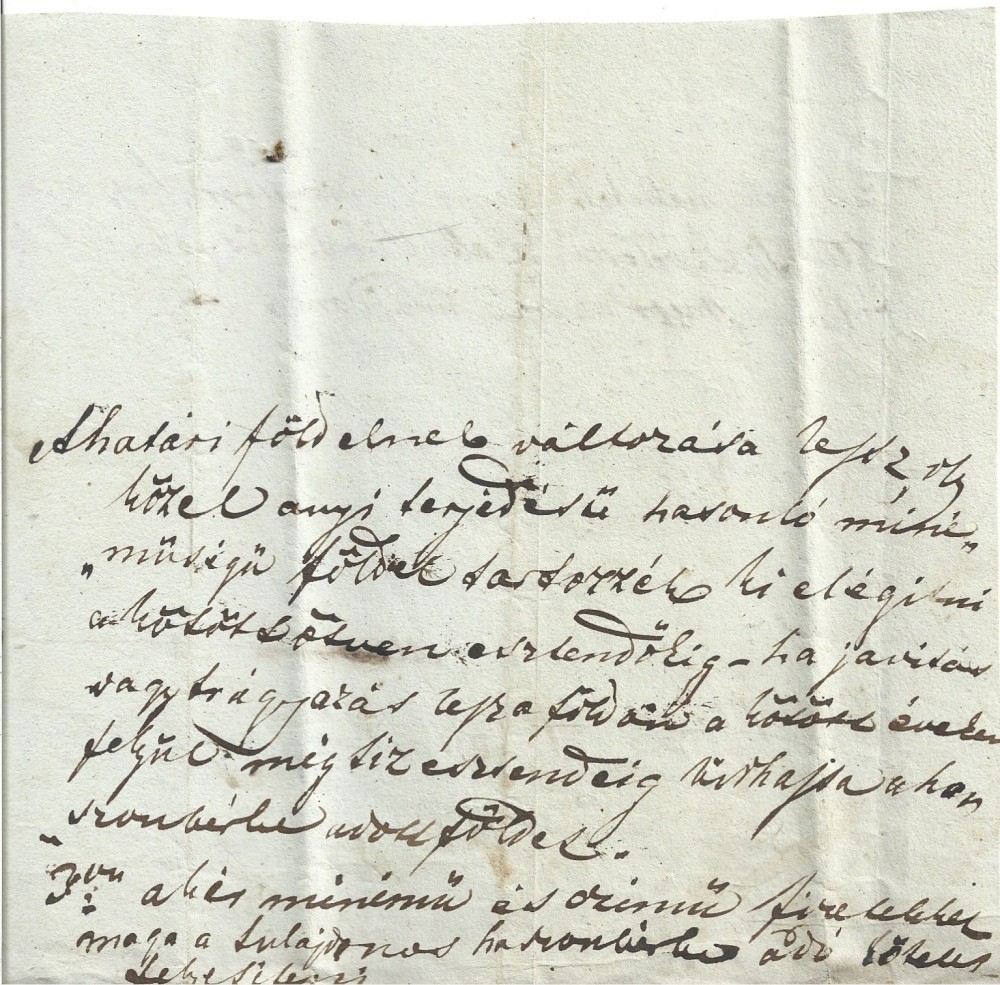 A határi földeknek változása lesz, oly
közel anyi terjedésü hasonló miné„
„müségü földel tartozzék ki elégitni
a kötött ötven esztendőkig – ha javitás
vagy trágyázás lesz a földön a kötött éveken
felyül még tiz esztendeig birhatja a ha
szonbérbe adott földet.
3or a bér minémü és czimü fizetéket
maga a tulajdonos haszonbérbe adó köteles
teljesíteni